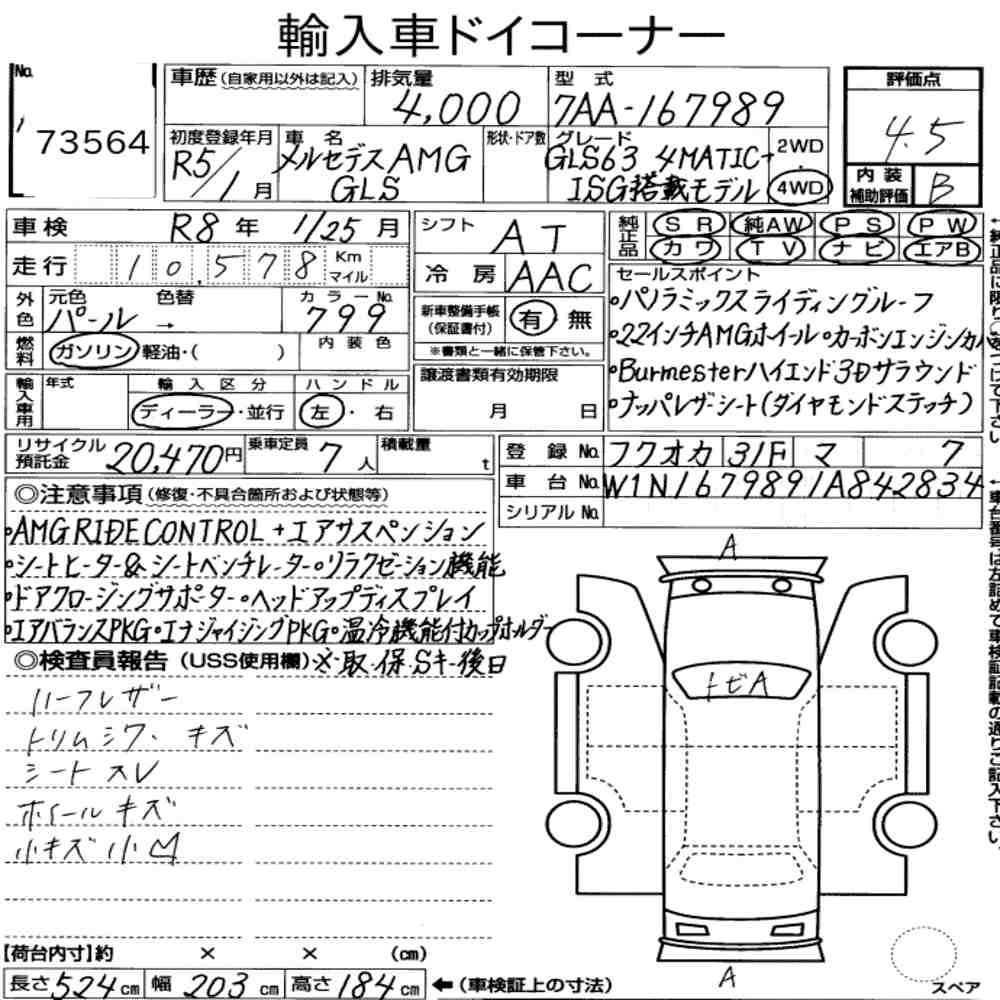 輸入車ドイコーナー
No.
73564
車歴(自家用以外は記入)
排気量
4,000
型式
7AA-167989
評価点
4.5
初度登録年月
R5/1月
車名
メルセデスAMG
GLS
形状・ドア数
グレード
GLS63 4MATIC+
ISG搭載モデル
2WD
4WD
内装
補助評価
B
車検
R8年 1/25月
シフト
AT
純正品
SR 純AW PS PW
カワ TV ナビ エアB
走行
10,578
Km
マイル
冷房
AAC
セールスポイント
•パノラミックスライディングルーフ
•22インチAMGホイール •カーボンエンジンカバ
•Burmesterハイエンド3Dサラウンド
•ナッパレザーシート(ダイヤモンドステッチ)
外色
元色
パール→
色替
カラーNo.
799
新車整備手帳
(保証書付)
有 無
※書類と一緒に保管下さい。
燃料
ガソリン・軽油・( )
内装色
譲渡書類有効期限
月 日
輸入車用
年式
輸入区分
ディーラー・並行
ハンドル
左・右
リサイクル
預託金
20,470円
乗車定員
7人
積載量
t
登録No.
フクオカ 31F マ 7
車台No.
W1N1679891A842834
シリアルNo.
◎注意事項(修復・不具合箇所および状態等)
•AMG RIDE CONTROL+エアサスペンション
•シートヒーター&シートベンチレーター•リラクゼーション機能
•ドアクロージングサポーター•ヘッドアップディスプレイ
•エアバランスPKG•エナジャイジングPKG•温冷機能付カップホルダー
◎検査員報告(USS使用欄)※・取・保・Sキー後日
ハーフレザー
トリムシワ・キズ
シートスレ
ホイールキズ
小キズ小凹
A
トビA
A
スペア
【荷台内寸】約 × × (cm)
長さ524cm 幅203cm 高さ184cm ←(車検証上の寸法)